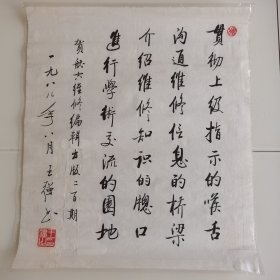 贯彻上级指示的喉舌
沟通维修信息的桥梁
介绍维修知识的窗口
进行学術交流的园地
贺航六维修编辑出版二百期
一九八八年八月王